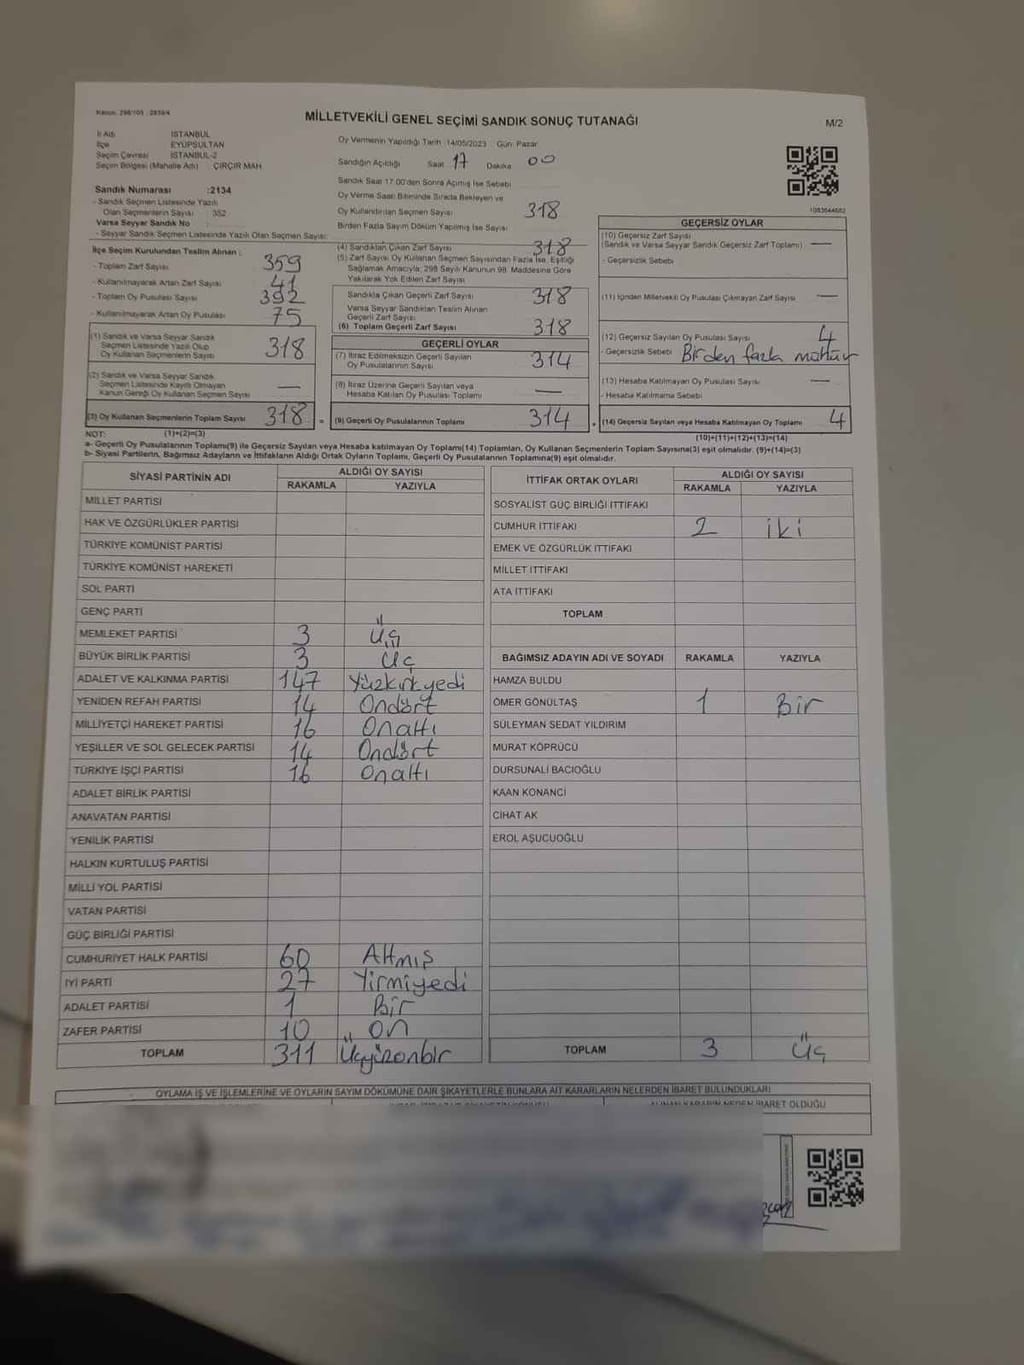 MİLLETVEKİLİ GENEL SEÇİMİ SANDIK SONUÇ TUTANAĞI
M/2
İl Adı İSTANBUL
İlçe EYÜPSULTAN
Seçim Çevresi İSTANBUL-2
Seçim Bölgesi (Mahalle Adı) ÇIRÇIR MAH
Sandık Numarası :2134
- Sandık Seçmen Listesinde Yazılı
Olan Seçmenlerin Sayısı : 352
Varsa Seyyar Sandık No
- Seyyar Sandık Seçmen Listesinde Yazılı Olan Seçmen Sayısı:
Oy Vermenin Yapıldığı Tarih :14/05/2023 Gün: Pazar
Sandığın Açıldığı Saat 17 Dakika 00
Sandık Saat 17.00'den Sonra Açılmış İse Sebebi
Oy Verme Saati Bitiminde Sırada Bekleyen ve
Oy Kullandırılan Seçmen Sayısı 318
Birden Fazla Sayım Döküm Yapılmış İse Sayısı
İlçe Seçim Kurulundan Teslim Alınan :
- Toplam Zarf Sayısı 359
- Kullanılmayarak Artan Zarf Sayısı 41
- Toplam Oy Pusulası Sayısı 392
- Kullanılmayarak Artan Oy Pusulası 75
(1) Sandık ve Varsa Seyyar Sandık
Seçmen Listesinde Yazılı Olup
Oy Kullanan Seçmenlerin Sayısı 318
(2) Sandık ve Varsa Seyyar Sandık
Seçmen Listesinde Kayıtlı Olmayan
Kanun Gereği Oy Kullanan Seçmen Sayısı —
(3) Oy Kullanan Seçmenlerin Toplam Sayısı 318
(4) Sandıktan Çıkan Zarf Sayısı 318
(5) Zarf Sayısı Oy Kullanan Seçmen Sayısından Fazla İse, Eşitliği
Sağlamak Amacıyla; 298 Sayılı Kanunun 98. Maddesine Göre
Yakılarak Yok Edilen Zarf Sayısı
Sandıkta Çıkan Geçerli Zarf Sayısı 318
Varsa Seyyar Sandıktan Teslim Alınan
Geçerli Zarf Sayısı
(6) Toplam Geçerli Zarf Sayısı 318
GEÇERLİ OYLAR
(7) İtiraz Edilmeksizin Geçerli Sayılan
Oy Pusulasının Sayısı 314
(8) İtiraz Üzerine Geçerli Sayılan veya
Hesaba Katılan Oy Pusulası Toplamı —
(9) Geçerli Oy Pusulalarının Toplamı 314
GEÇERSİZ OYLAR
(10) Geçersiz Zarf Sayısı
(Sandık ve Varsa Seyyar Sandık Geçersiz Zarf Toplamı) —
- Geçersizlik Sebebi
(11) İçinden Milletvekili Oy Pusulası Çıkmayan Zarf Sayısı —
(12) Geçersiz Sayılan Oy Pusulası Sayısı 4
- Geçersizlik Sebebi Birden fazla mühür
(13) Hesaba Katılmayan Oy Pusulası Sayısı —
- Hesaba Katılmama Sebebi
(14) Geçersiz Sayılan veya Hesaba Katılmayan Oy Toplamı 4
NOT: (1)+(2)=(3)
(10)+(11)+(12)+(13)=(14)
a- Geçerli Oy Pusulalarının Toplamı(9) ile Geçersiz Sayılan veya Hesaba katılmayan Oy Toplamı(14) Toplamları, Oy Kullanan Seçmenlerin Toplam Sayısına(3) eşit olmalıdır. (9)+(14)=(3)
b- Siyasi Partilerin, Bağımsız Adayların ve İttifakların Aldığı Ortak Oyların Toplamı, Geçerli Oy Pusulalarının Toplamına(9) eşit olmalıdır.
SİYASİ PARTİNİN ADI ALDIĞI OY SAYISI
RAKAMLA YAZIYLA
MİLLET PARTİSİ
HAK VE ÖZGÜRLÜKLER PARTİSİ
TÜRKİYE KOMÜNİST PARTİSİ
TÜRKİYE KOMÜNİST HAREKETİ
SOL PARTİ
GENÇ PARTİ
MEMLEKET PARTİSİ 3 Üç
BÜYÜK BİRLİK PARTİSİ 3 Üç
ADALET VE KALKINMA PARTİSİ 147 Yüzkırkyedi
YENİDEN REFAH PARTİSİ 14 Ondört
MİLLİYETÇİ HAREKET PARTİSİ 16 Onaltı
YEŞİLLER VE SOL GELECEK PARTİSİ 14 Ondört
TÜRKİYE İŞÇİ PARTİSİ 16 Onaltı
ADALET BİRLİK PARTİSİ
ANAVATAN PARTİSİ
YENİLİK PARTİSİ
HALKIN KURTULUŞ PARTİSİ
MİLLİ YOL PARTİSİ
VATAN PARTİSİ
GÜÇ BİRLİĞİ PARTİSİ
CUMHURİYET HALK PARTİSİ 60 Altmış
İYİ PARTİ 27 Yirmiyedi
ADALET PARTİSİ 1 Bir
ZAFER PARTİSİ 10 On
TOPLAM 311 Üçyüzonbir
İTTİFAK ORTAK OYLARI ALDIĞI OY SAYISI
RAKAMLA YAZIYLA
SOSYALİST GÜÇ BİRLİĞİ İTTİFAKI
CUMHUR İTTİFAKI 2 iki
EMEK VE ÖZGÜRLÜK İTTİFAKI
MİLLET İTTİFAKI
ATA İTTİFAKI
TOPLAM
BAĞIMSIZ ADAYIN ADI VE SOYADI RAKAMLA YAZIYLA
HAMZA BULDU
ÖMER GÖNÜLTAŞ 1 Bir
SÜLEYMAN SEDAT YILDIRIM
MURAT KÖPRÜCÜ
DURSUNALİ BACIOĞLU
KAAN KONANCİ
CİHAT AK
EROL AŞUCUOĞLU
TOPLAM 3 Üç
OYLAMA İŞ VE İŞLEMLERİNE VE OYLARIN SAYIM DÖKÜMÜNE DAİR ŞİKAYETLERLE BUNLARA AİT KARARLARIN NELERDEN İBARET BULUNDUKLARI
ALINAN KARARIN NEDEN İBARET OLDUĞU